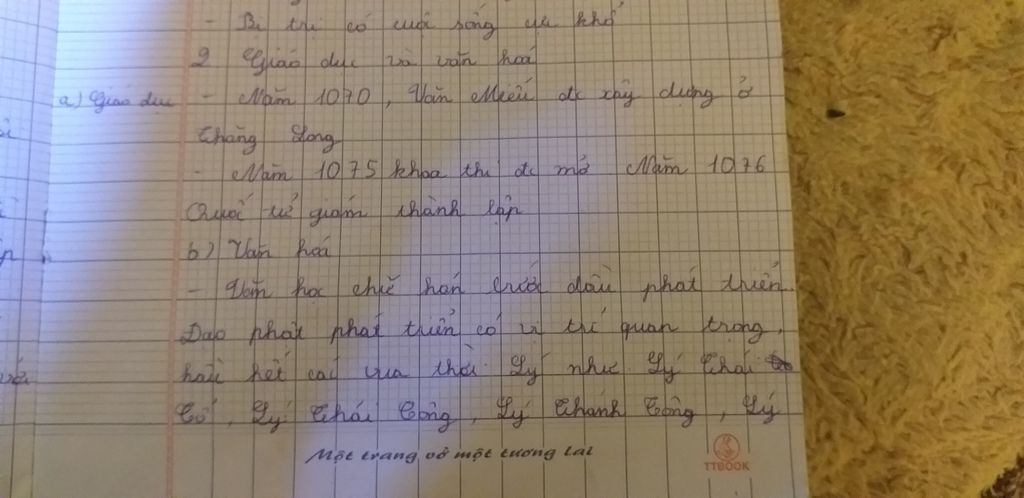 - Bị trị có cuộc sống cực khổ
2 Giáo dục và văn hoá
a) Giáo dục - Năm 1070, Văn Miếu đc xây dựng ở
Thăng Long
- Năm 1075 khoa thi đc mở Năm 1076
Quốc tử giám thành lập
b) Văn hoá
- Văn học chữ hán bước đầu phát triển
Đạo phật phát triển có vị trí quan trọng,
hầu hết các vua thời Lý như Lý Thái
Tổ, Lý Thái Tông, Lý Thánh Tông, Lý
Một trang vở một tương lai
TTBOOK